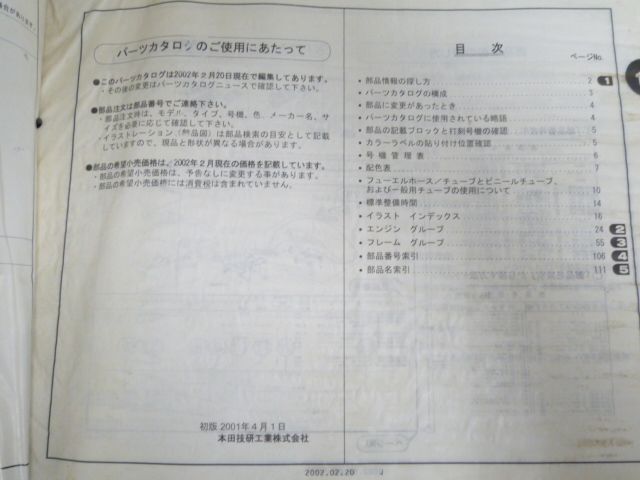 パーツカタログのご使用にあたって
●このパーツカタログは2002年2月20日現在で編集してあります。
・その後の変更はパーツカタログニュースで確認して下さい。
●部品注文は部品番号でご連絡下さい。
・部品注文時は、モデル、タイプ、号機、色、メーカー名、サ
イズを必要に応じて確認して下さい。
・イラストレーション(部品図)は部品検索の目安として記載
していますので、現品と形状が異なる場合があります。
●部品の希望小売価格は、2002年2月現在の価格を記載しています。
・部品の希望小売価格は、予告なしに変更する事があります。
・部品の希望小売価格には消費税は含まれていません。
初版 2001年4月1日
本田技研工業株式会社
目 次
ページNo.
・部品情報の探し方 2 1
・パーツカタログの構成 3
・部品に変更があったとき 4
・パーツカタログに使用されている略語 4
・部品の記載ブロックと打刻号機の確認 5
・カラーラベルの貼り付け位置確認 5
・号機管理表 6
・配色表 7
・フューエルホース/チューブとビニールチューブ、
および一般用チューブの使用について 10
・標準整備時間 14
・イラスト インデックス 16
・エンジン グループ 24 2
・フレーム グループ 55 3
・部品番号索引 106 4
・部品名索引 111 5
2002.02.20 J